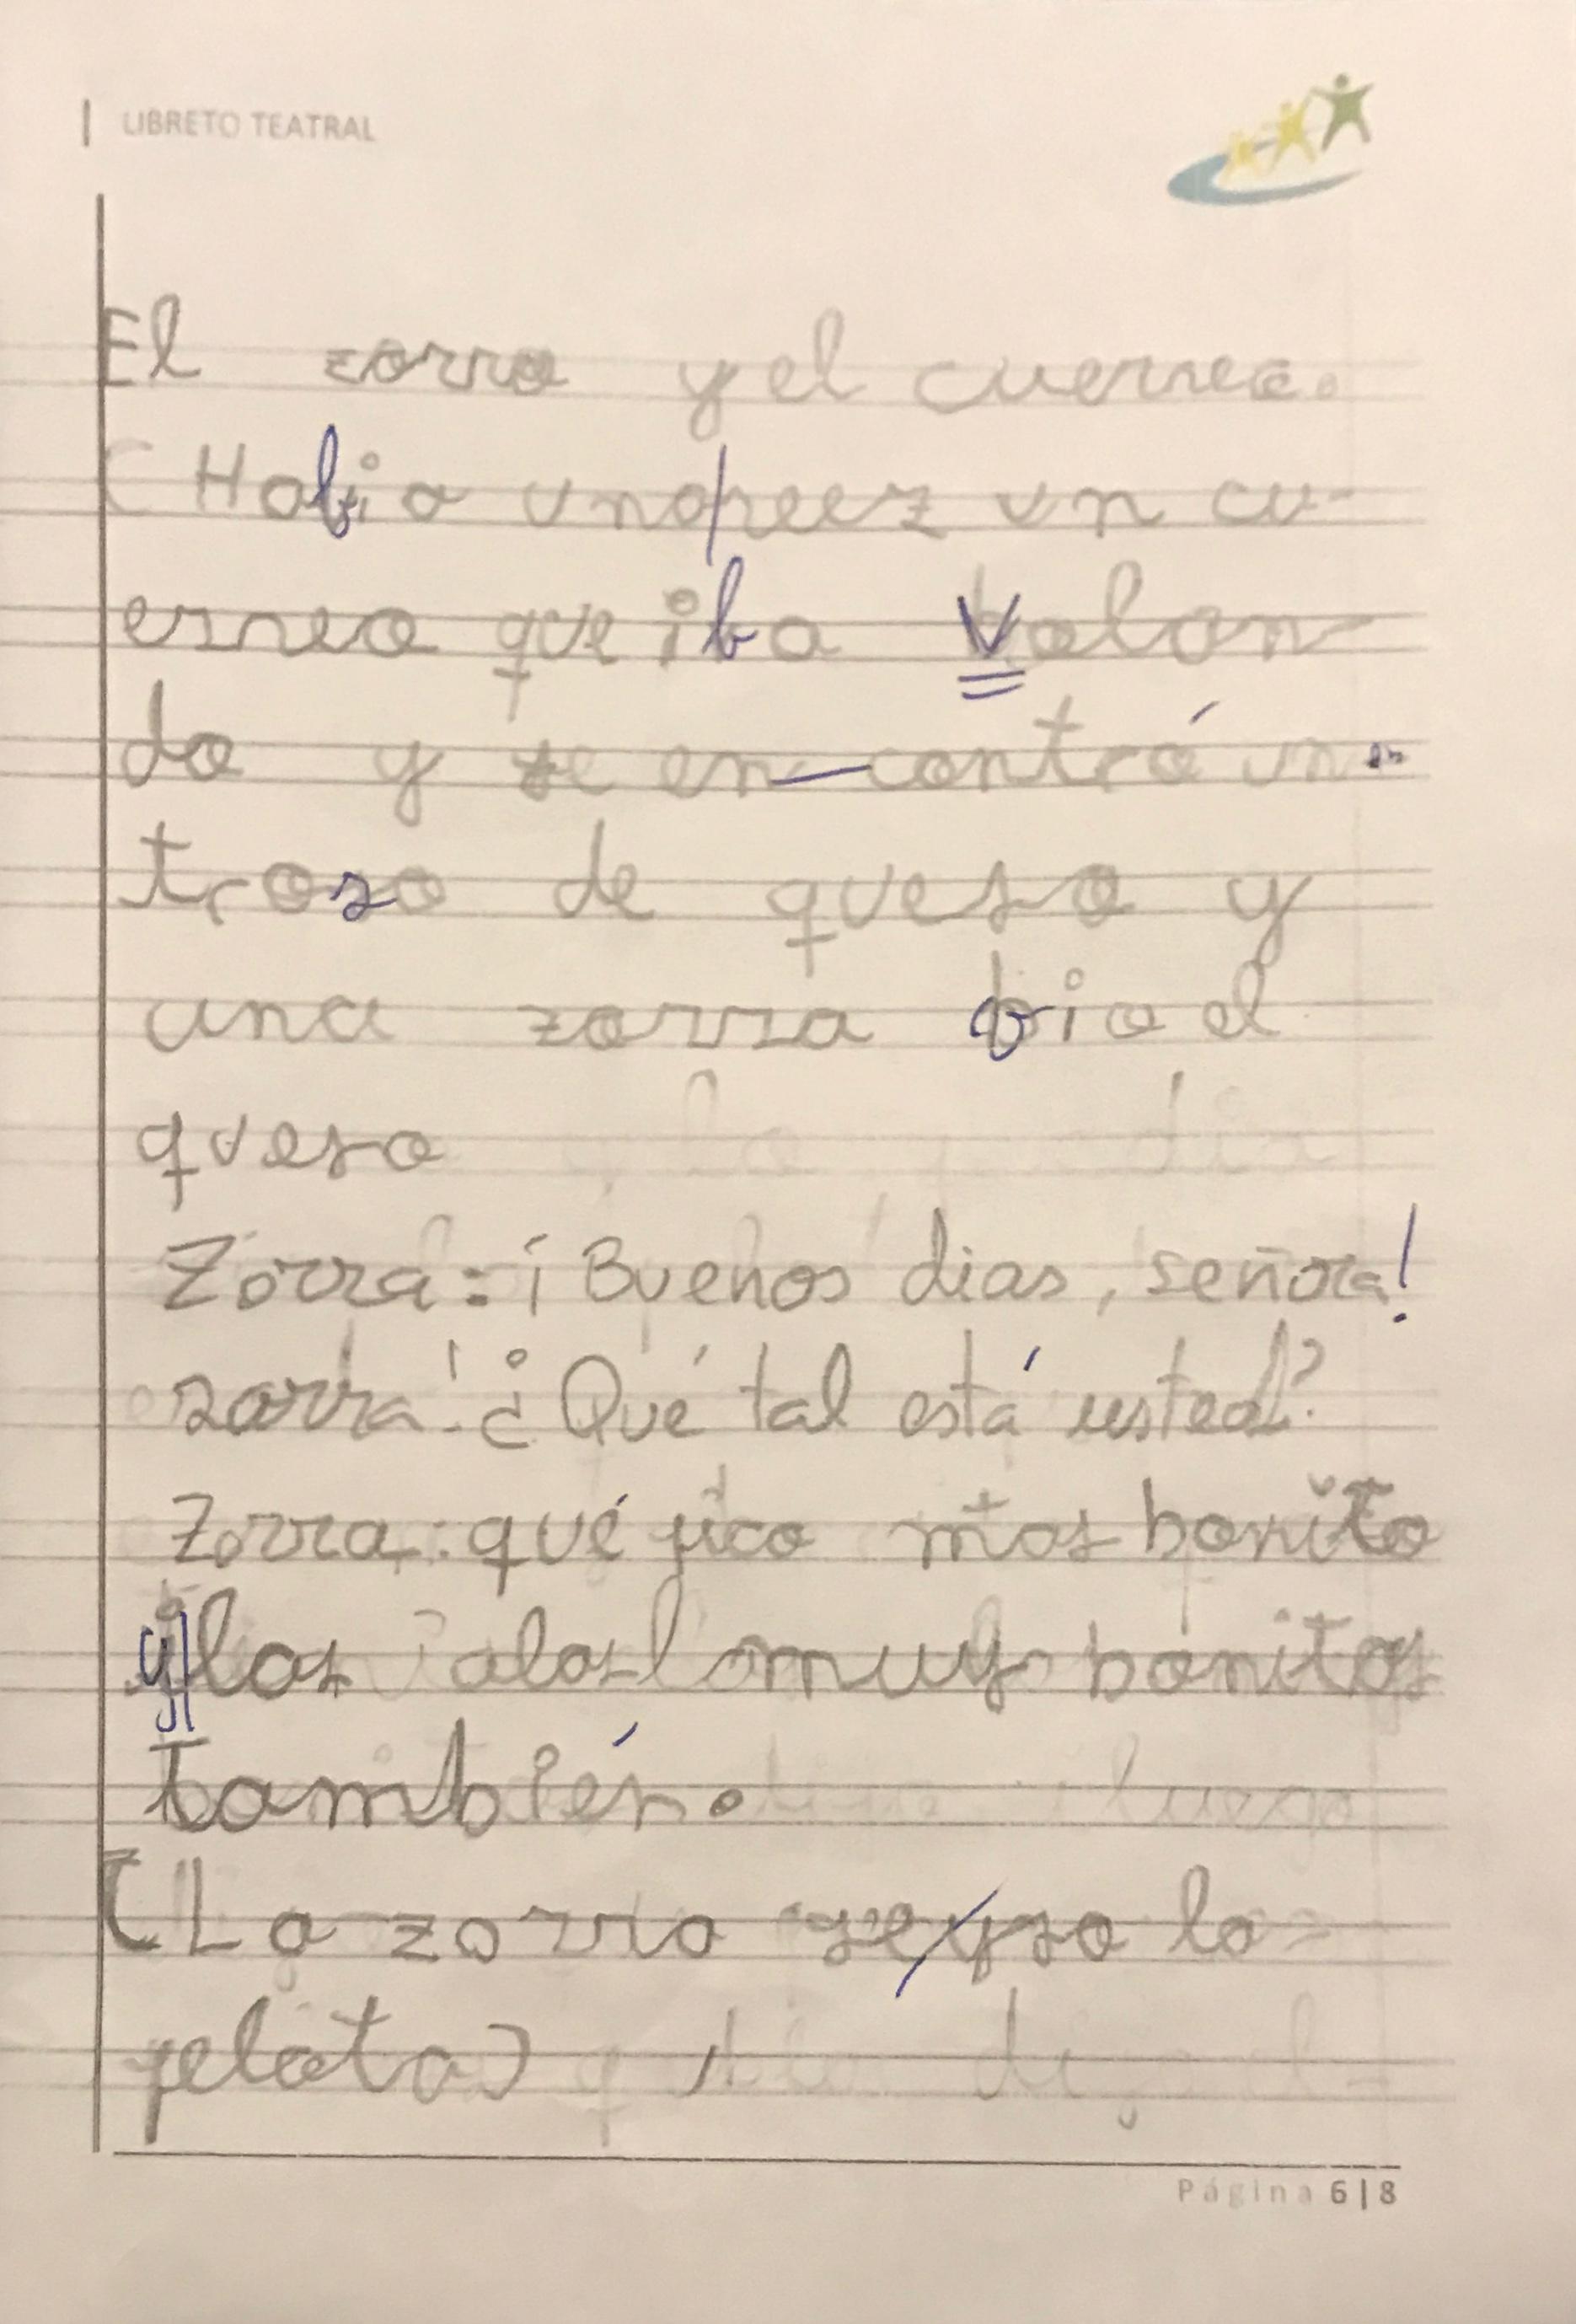 LIBRETO TEATRAL
El zorro y el cuerveo.
( Habia unapeez un cu-
erveo que iba volan
do y se en contró un
troso de queso y
una zorra bio el
queso
Zorra: ¡Buenos dias, señora!
zorra! ¿Qué tal está usted?
Zorra: qué pico mas bonito
y las alas muy bonitas
también.
(La zorra seyso la
pelota)
Página 6|8